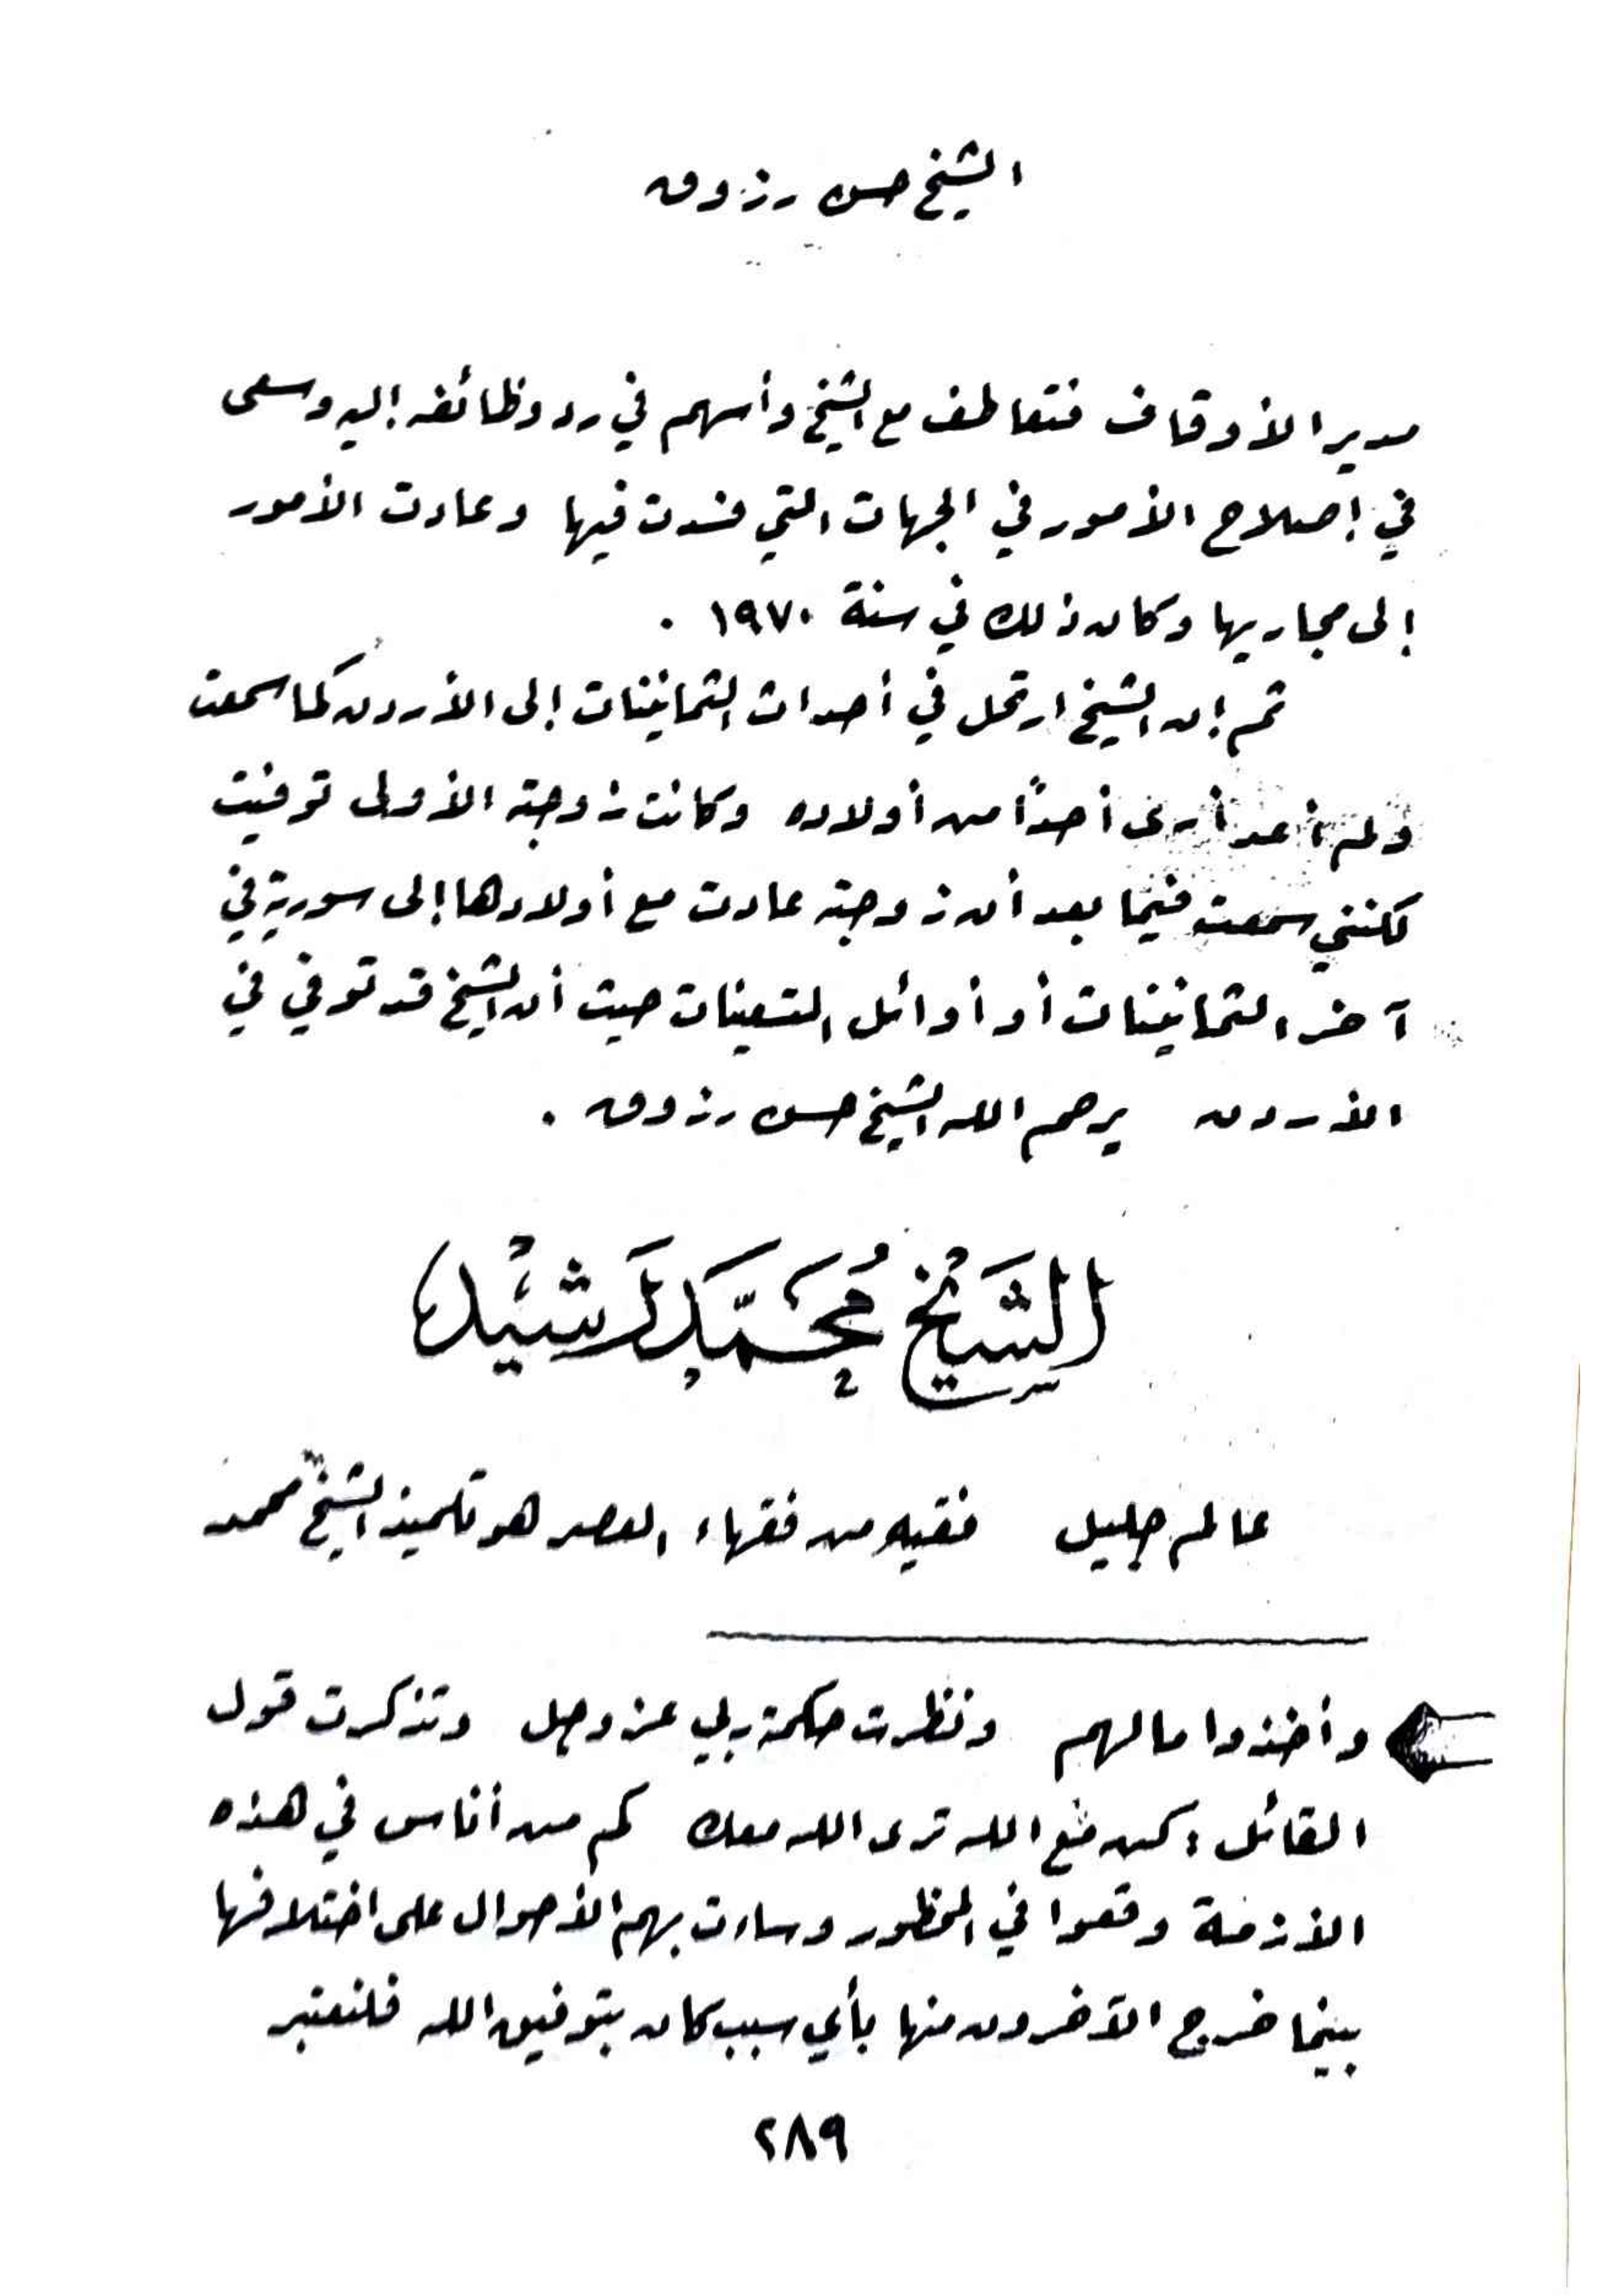 الشيخ حسن رزوق
مديرا لأوقاف فتعاطف مع الشيخ وأسهم في رد وظائفه إليه وسعى
في إصلاح الأمور في الجهات التي فسدت فيها وعادت الأمور
إلى مجاريها وكان ذلك في سنة ١٩٧٠ .
ثم إن الشيخ ارتحل في أحداث الثمانينات إلى الأردن كما سمعت
ولم أعد أرى أحداً من أولاده وكانت زوجته الأولى توفيت
لكنني سمعت فيما بعد أن زوجته عادت مع أولادها إلى سورية في
آخر الثمانينات أو أوائل التسعينات حيث أن الشيخ قد توفي في
الأردن يرحم الله الشيخ حسن رزوق .
الشَيْخُ مُحَمَّد رَشِيْد
عالم جليل فقيه من فقهاء العصر هو تلميذ الشيخ محمد
وأخذوا مالهم ونظرت حكمة ربي عز وجل وتذكرت قول
القائل : كن مع الله ترى الله معك كم من أناس في هذه
الأزمنة وقعوا في المحظور وساءت بهم الأحوال على اختلافها
بينما خرج الآخرون منها بأي سبب كان بتوفيق الله فلنعتبر
٢٨٩